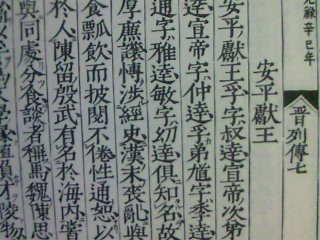 元祿辛巳年
晉列傳七
安平獻王
安平獻王孚字叔達宣帝次弟
達宣帝字仲達孚弟馗字季達
通字雅達敏字幼達俱知名故
厚廉讓博涉經史漢末喪亂與
食瓢飲而披閱不倦性通恕以
於人陳留殷武有名於海內嘗
與同處分食談者稱焉魏陳思
文學掾植負才陵物